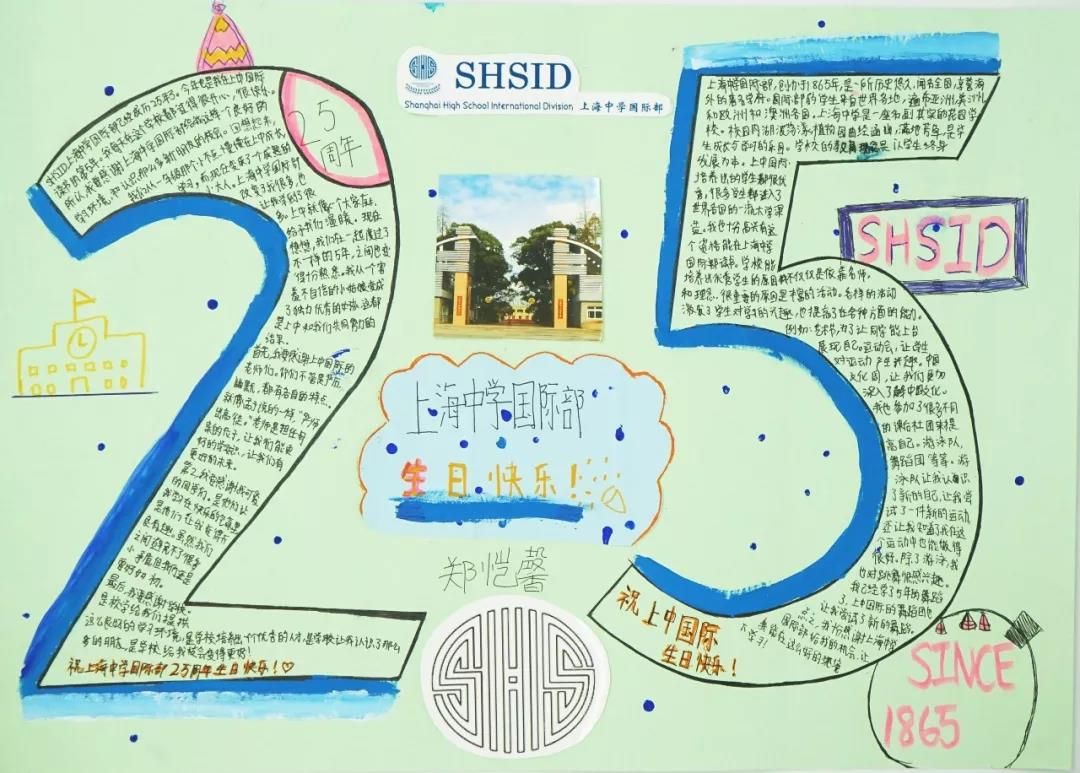 SHSID
Shanghai High School International Division 上海中学国际部
25
周年
SHSID上海中学国际部已经成历25年了。今年也是我在上中国际
所以,我要感谢上海中学国际部给我这样一个良好的
学习环境,
成长,
小大人。上海中学国际部
改变了我很多,也
让我学到了很
多。上中就像一个大家庭,
给予我们温暖。现在
想想,我们在一起度过了
不一样的5年,之间也变
得十分熟悉。我从一个害
羞不自信的小姑娘变成
了独立优秀的女孩,这都
是上中和我们共同努力的
结果。
首先,我要感谢上中国际的
老师们。你们不管是严厉,
幽默,都有各自的特点。
就像孟子说的一样,“严师
出高徒。”
好的学知识,让我们有
更好的未来。
第二,我要感谢我可爱
的同学们。是他们让
很有趣。虽然我们
之间避免不了很多
小矛盾,但我们还是
最后,我要感谢学校。
是校方给我们提供
这么良好的学习环境,是学校培养一个个优秀的人才,是学校让我认识了那么
多的朋友,是学校给我机会变得更好!
祝上海中学国际部25周年生日快乐!♡
上海中学国际部,创办于1865年,是一所历史悠久,闻名全国,享誉海
外的著名学府。国际部的学生来自世界各地,遍布亚洲,美洲
和欧洲和澳洲各国。上海中学是一座名副其实的花园学
校。校园内湖波荡漾,植物园曲径通幽,满地芳草,是学
生成长与学习的乐园。学校的教育理念是让学生终身
发展为本。上中国际
培养出的学生都很优
秀,很多学生都进入了
世界各国的一流大学深
造。我也十分高兴有这
个资格能在上海中学
国际部读书。学校能
培养出优秀学生的原因并不仅仅是依靠名师
和理念,很重要的原因是丰富的活动。各样的活动
激发了学生对学习的兴趣,也提高了在各种方面的能力。
例如:艺术节,为了让同学能上台
展现自己。运动会,让学生
对运动产生兴趣。中国
文化周,让我们更加
深入了解中国文化。
我也参加了很多不同
的课后社团来提
高自己。游泳队,
舞蹈团等等。游
泳队让我认识
了新的自己,让我尝
试了一件新的运动,
还让我知道了我在这
个运动中也能做得
很好。除了游泳,我
也对跳舞很感兴趣。
我已经学了5年的舞蹈
了,上中国际的舞蹈团也
让我尝试了新的舞蹈。
总之,我十分感谢上海中学
国际部给我的机会,让
我能在这么好的环境
下学习!
祝上中国际
生日快乐!
SHSID
上海中学国际部
生日快乐!
郑恺馨
SHS
SINCE
1865